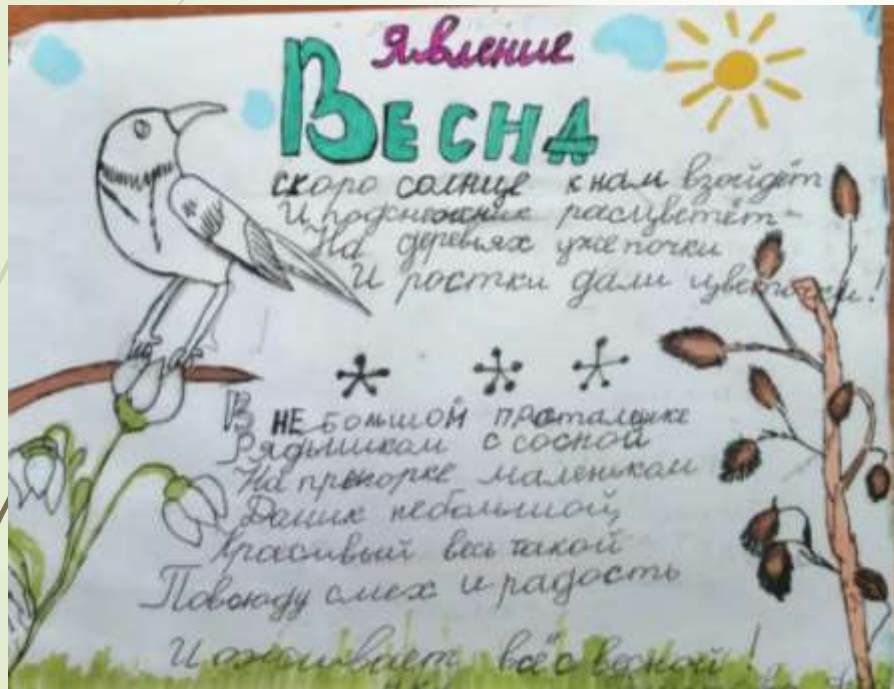 Явление
Весна
скоро солнце к нам взойдёт
И подснежник расцветёт -
На деревьях уже почки
И ростки дали цветочки!
В НЕ большой проталинке
Рядышком с сосной
На пригорке маленьком
Домик небольшой,
Красивый весь такой
Повсюду смех и радость
И оживает всё с весной!